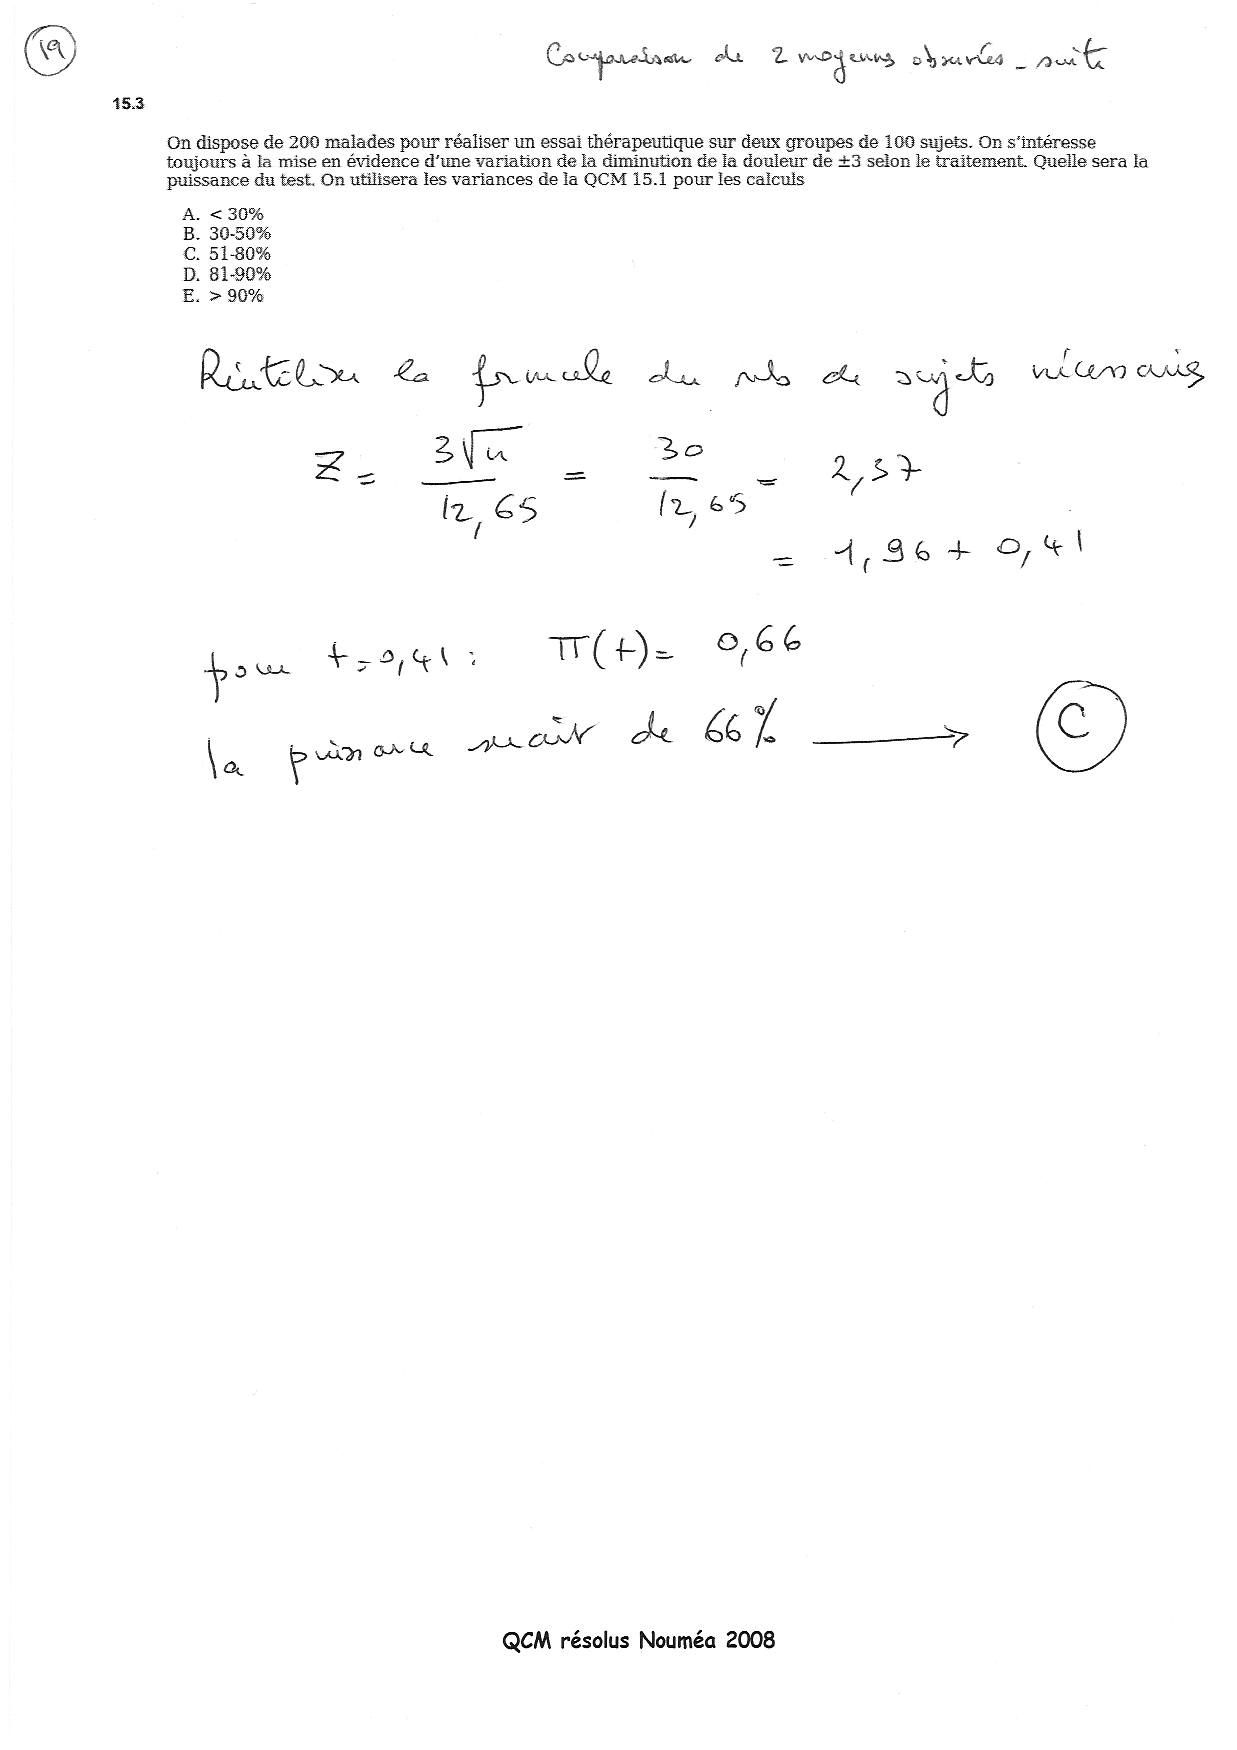 19
Comparaison de 2 moyennes observées - suite
15.3
On dispose de 200 malades pour réaliser un essai thérapeutique sur deux groupes de 100 sujets. On s'intéresse
toujours à la mise en évidence d'une variation de la diminution de la douleur de ±3 selon le traitement. Quelle sera la
puissance du test. On utilisera les variances de la QCM 15.1 pour les calculs
A. < 30%
B. 30-50%
C. 51-80%
D. 81-90%
E. > 90%
Réutiliser la formule du nb de sujets nécessaires
Z = 3√n / 12,65 = 30 / 12,65 = 2,37
= 1,96 + 0,41
pour t = 0,41 : π(t) = 0,66
la puissance serait de 66% → C
QCM résolus Nouméa 2008